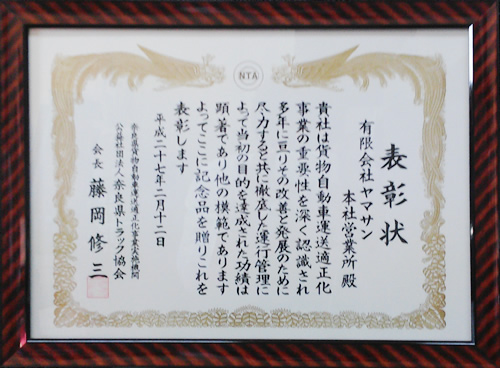 NTA
表彰状
有限会社ヤマサン
本社営業所殿
貴社は貨物自動車運送適正化
事業の重要性を深く認識され
多年に亘りその改善と発展のために
尽力すると共に徹底した運行管理に
よって当初の目的を達成された功績は
顕著であり他の模範であります
よってここに記念品を贈りこれを
表彰します
平成二十七年二月十二日
奈良県貨物自動車運送適正化事業実施機関
公益社団法人奈良県トラック協会
会長 藤岡修三